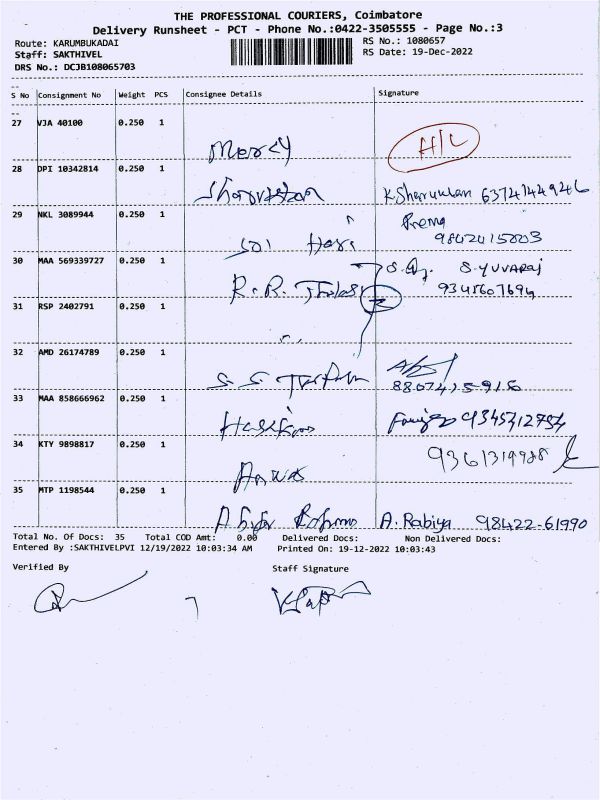 THE PROFESSIONAL COURIERS, Coimbatore
Delivery Runsheet - PCT - Phone No.:0422-3505555 - Page No.:3
Route: KARUMBUKADAI
Staff: SAKTHIVEL
DRS No.: DCJB108065703
RS No.: 1080657
RS Date: 19-Dec-2022
S No Consignment No Weight PCS Consignee Details Signature
27 VJA 40100 0.250 1
Mercy H/L
28 DPI 10342814 0.250 1
K. Sharukhan
29 NKL 3089944 0.250 1 Prema
Sri Hari 98424 15803
30 MAA 569339727 0.250 1 S. YUVARAJ
R. R. 9345607694
31 RSP 2402791 0.250 1
32 AMD 26174789 0.250 1
S. S. 8807415916
33 MAA 858666962 0.250 1
9345712754
34 KTY 9898817 0.250 1
Anwar
35 MTP 1198544 0.250 1
A. Rabiya 98422-61990
Total No. Of Docs: 35 Total COD Amt: 0.00 Delivered Docs: Non Delivered Docs:
Entered By :SAKTHIVELPVI 12/19/2022 10:03:34 AM Printed On: 19-12-2022 10:03:43
Verified By Staff Signature